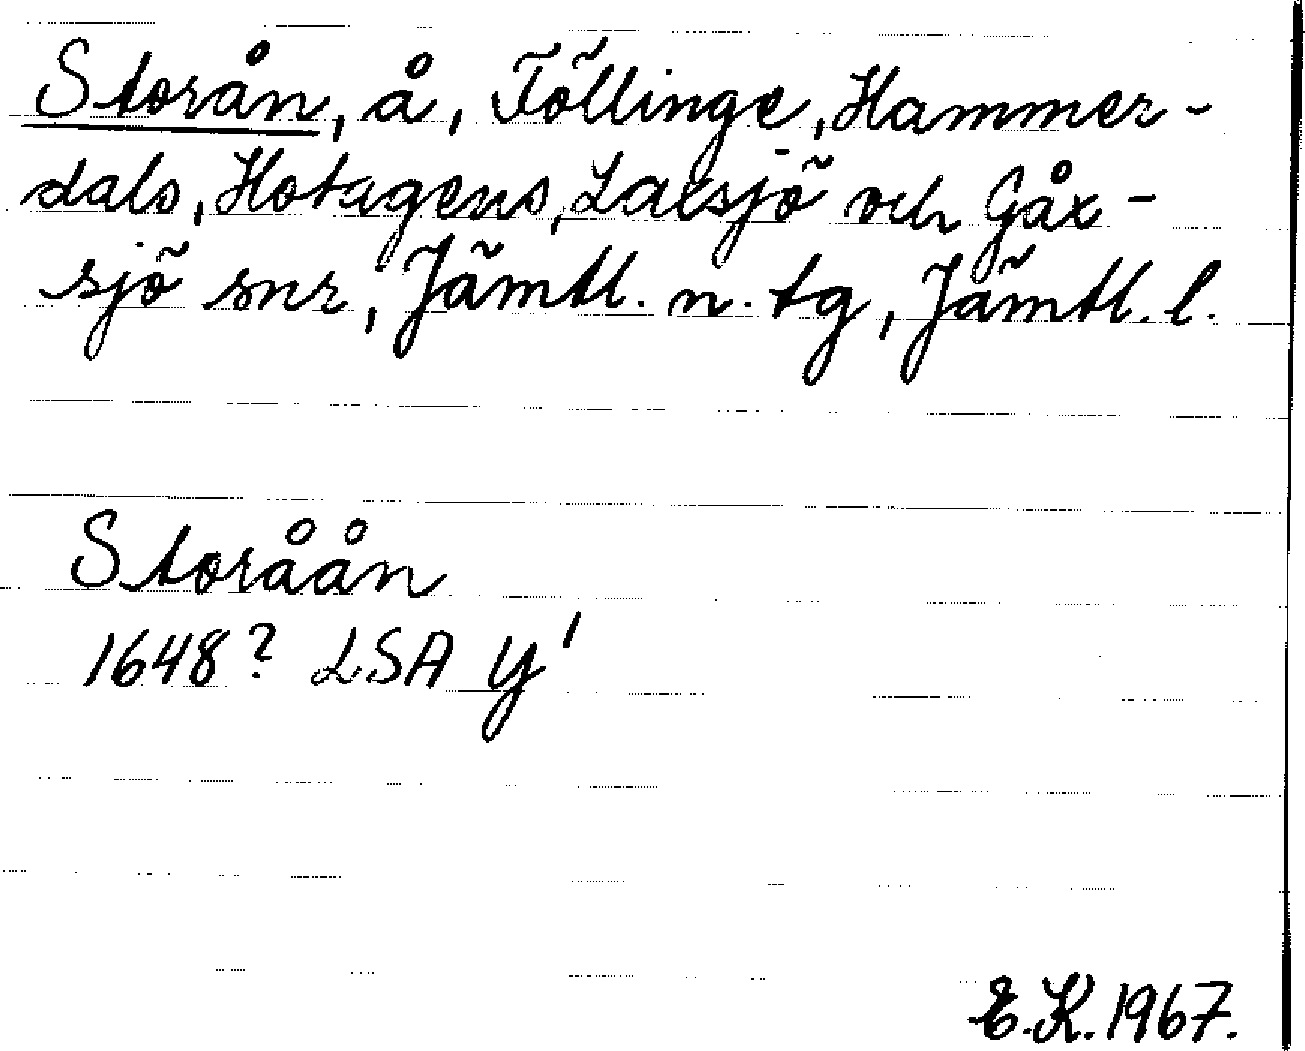 Storån, å, Föllinge, Hammer-
dals, Hotagens, Laxsjö och Gåx-
sjö snr, Jämtl. n. tg, Jämtl. l.
Storåån
1648? LSA Y¹
E.K. 1967.